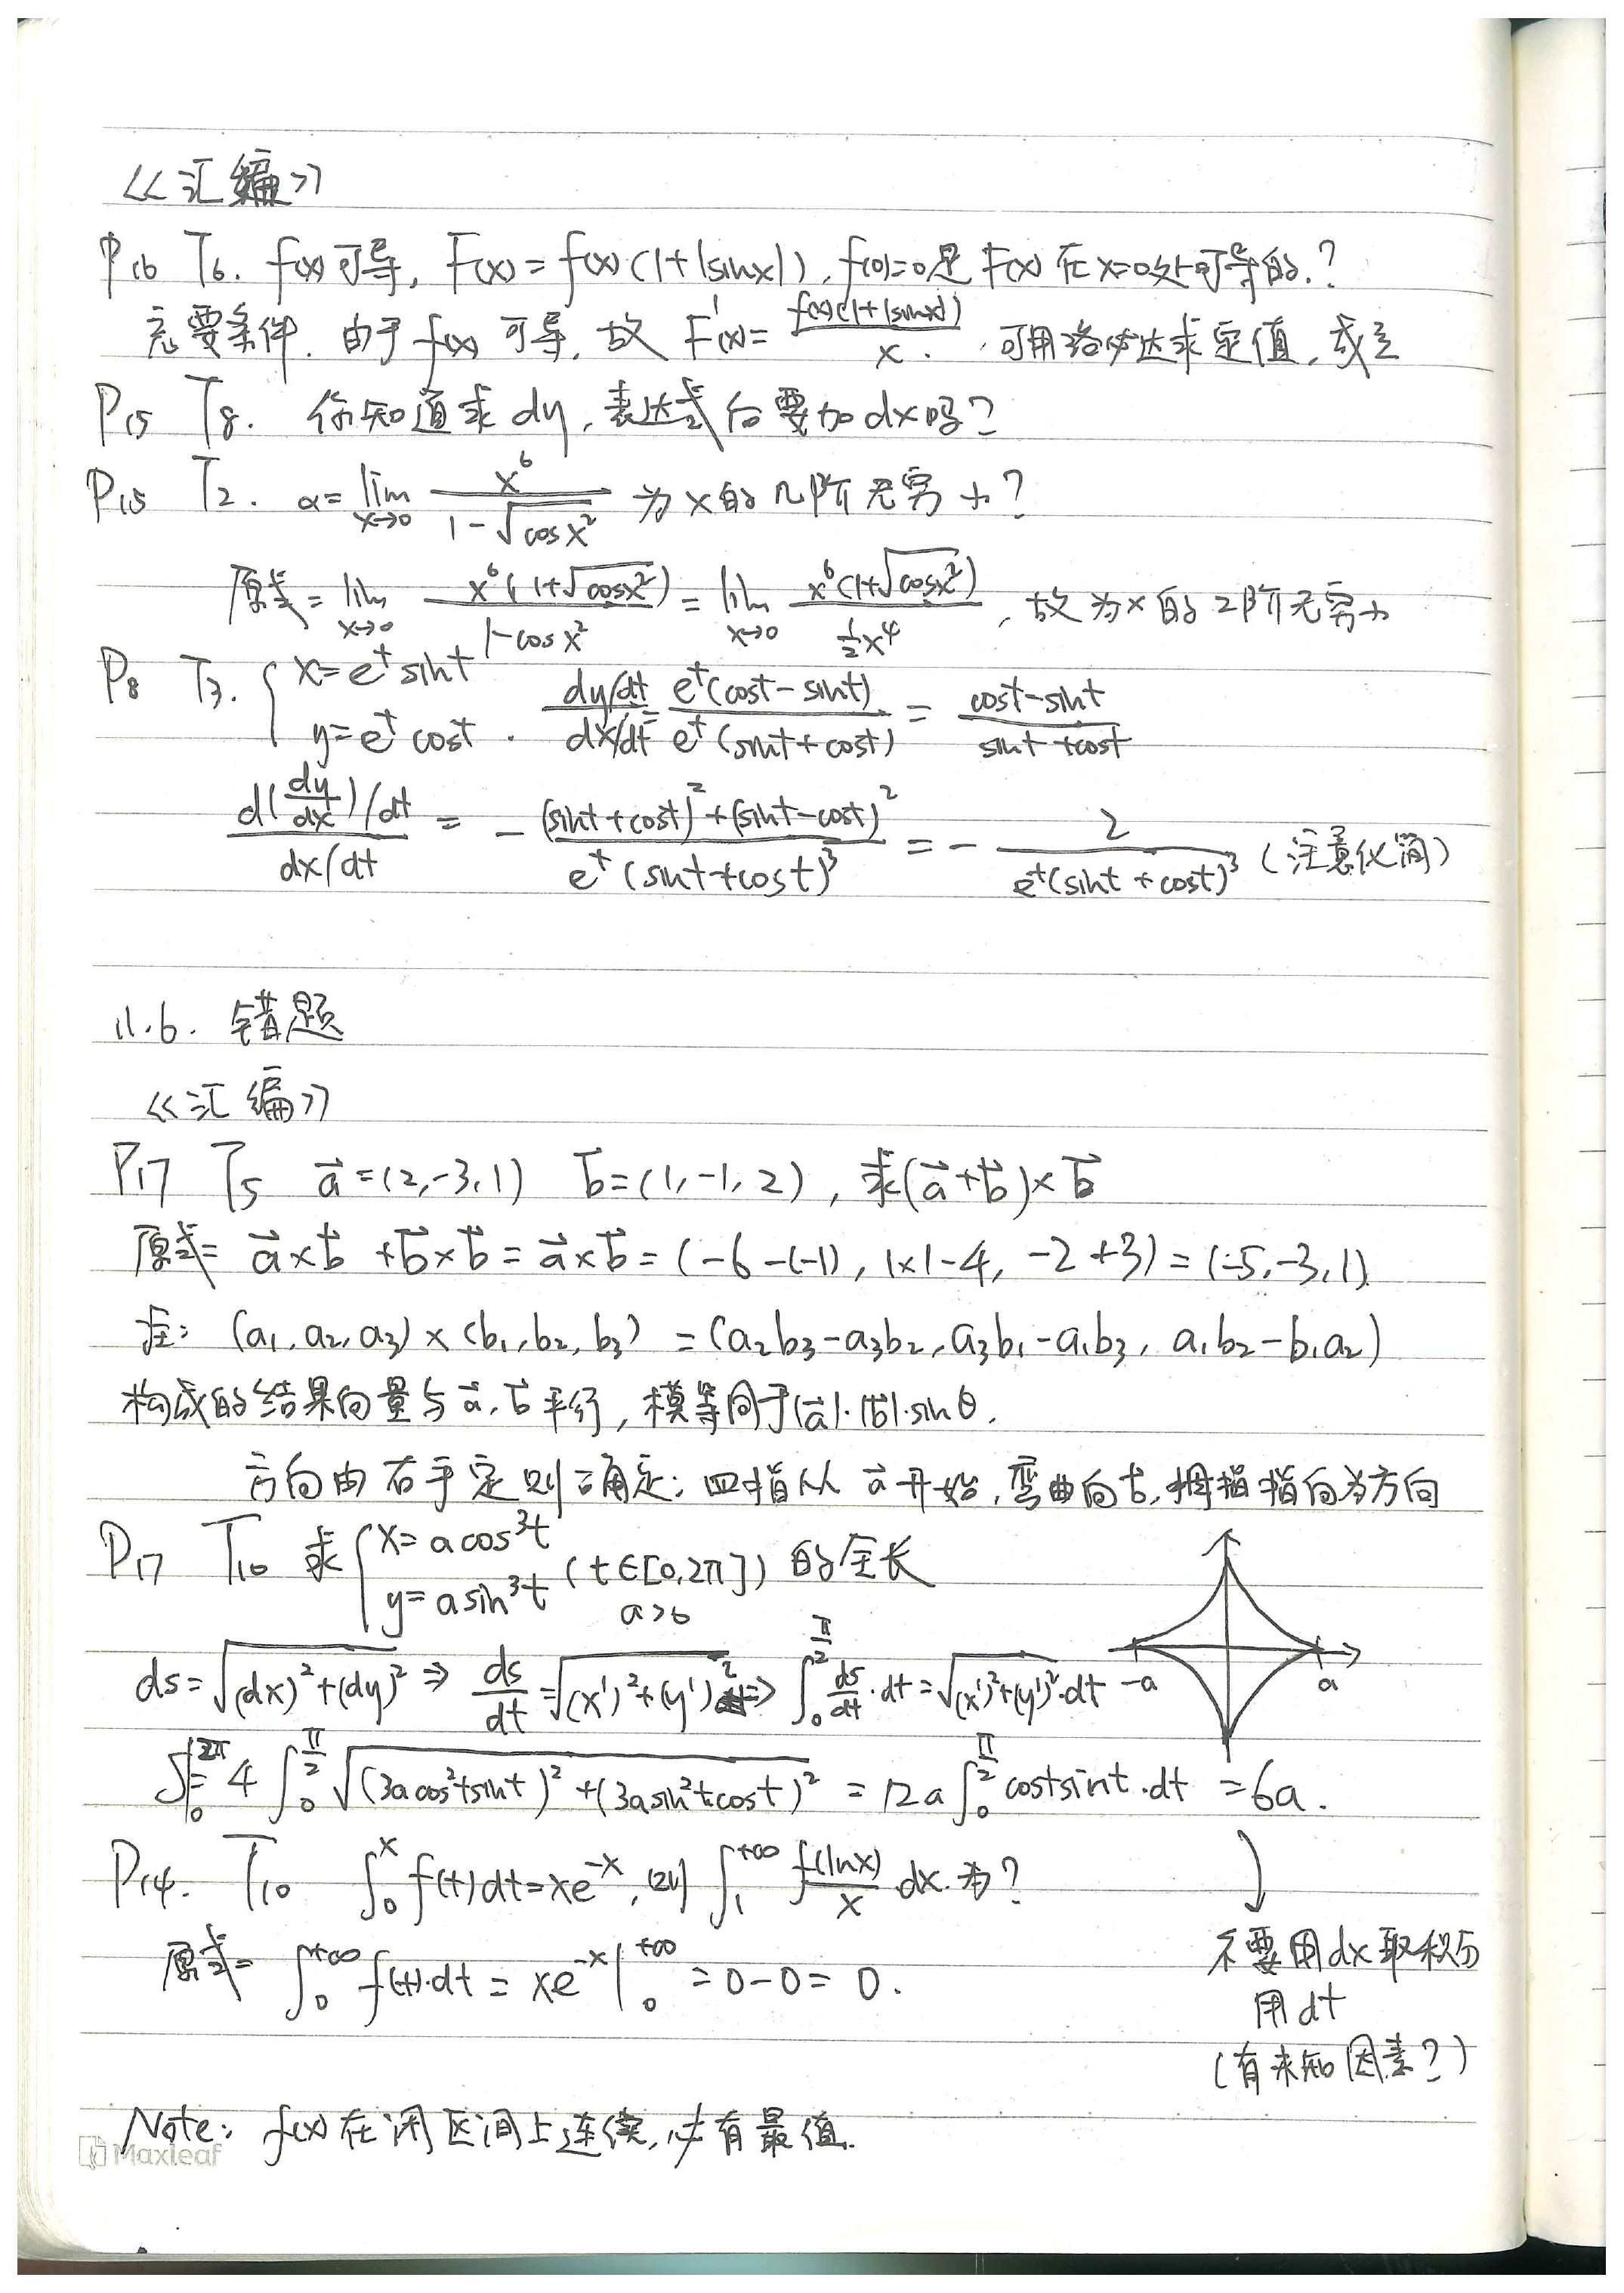 《汇编》
P16 T6. f(x)可导, F(x)=f(x)(1+|sinx|), f(0)=0是F(x)在x=0处可导的.?
充要条件. 由于f(x)可导, 故 F'(x)= f(x)(1+|sinx|)/x . 可用洛必达求定值, 成立
P15 T8. 你知道求dy, 表达式后要加dx吗?
P15 T2. α=lim x→0 x^6/(1-√cosx²) 为x的几阶无穷小?
原式=lim x→0 x^6(1+√cosx²)/(1-cosx²) = lim x→0 x^6(1+√cosx²)/(½x⁴), 故为x的2阶无穷小
P8 T3. { x=e^t sint y=e^t cost . (dy/dt)/(dx/dt) = e^t(cost-sint)/(e^t(sint+cost)) = (cost-sint)/(sint+cost)
(d(dy/dx)/dt)/(dx/dt) = - ((sint+cost)²+(sint-cost)²)/(e^t(sint+cost)³) = - 2/(e^t(sint+cost)³) (注意化简)
11.6. 错题
《汇编》
P17 T5 a⃗=(2,-3,1) b⃗=(1,-1,2), 求(a⃗+b⃗)×b⃗
原式= a⃗×b⃗+b⃗×b⃗=a⃗×b⃗=(-6-(-1), 1×1-4, -2+3)=(-5,-3,1)
注: (a₁,a₂,a₃)×(b₁,b₂,b₃)=(a₂b₃-a₃b₂,a₃b₁-a₁b₃, a₁b₂-b₁a₂)
构成的结果向量与a⃗,b⃗平行, 模等同于|a⃗|·|b⃗|·sinθ.
方向由右手定则确定: 四指从a⃗开始, 弯曲向b⃗, 拇指指向为方向
P17 T10 求{ x=acos³t y=asin³t (t∈[0,2π]) a>0 的全长
ds=√((dx)²+(dy)²) ⇒ ds/dt=√((x')²+(y')²) ⇒ ∫₀^(π/2) ds/dt·dt=√((x')²+(y')²)·dt
-a a
S|₀^(2π)=4∫₀^(π/2) √((3acos²tsint)²+(3asin²tcost)²) =12a∫₀^(π/2) costsint·dt =6a.
P14. T10 ∫₀^x f(t)dt=xe^(-x), 则∫₁^(+∞) f(lnx)/x dx.为?
原式= ∫₀^(+∞) f(t)·dt = xe^(-x)|₀^(+∞) =0-0= 0.
不要用dx取积分
用dt
(有未知因素?)
Note: f(x)在闭区间上连续, 必有最值.
Maxleaf